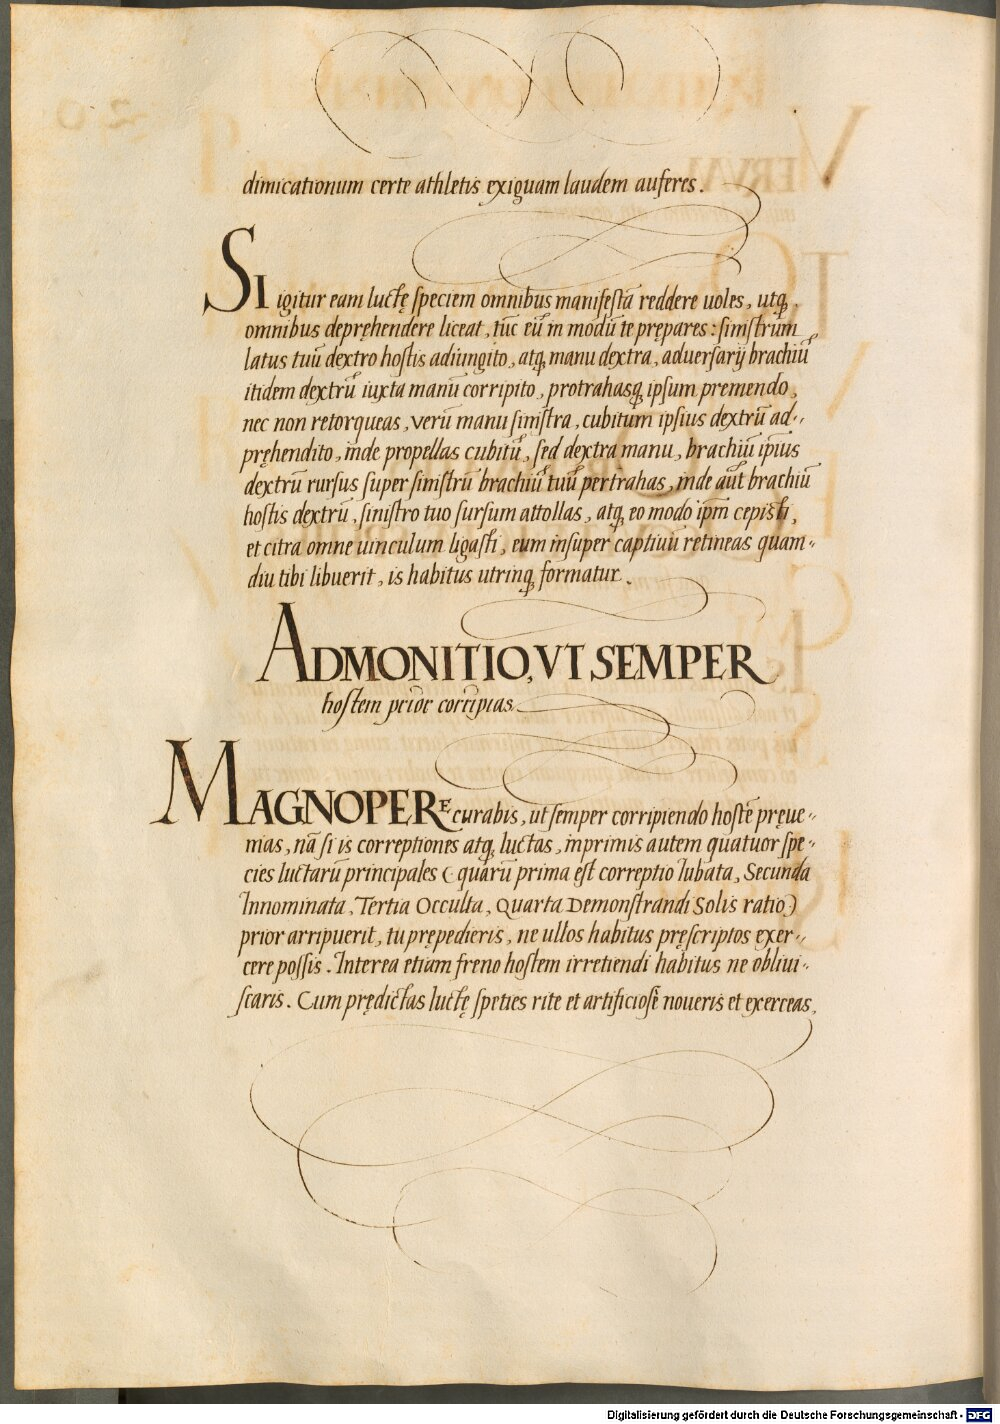 dimicationum certe athletis exiguam laudem auferes.
SI igitur eam luctę speciem omnibus manifestā reddere uoles, utq̨
omnibus deprehendere liceat, tūc eū in modū te prępares: sinistrum
latus tuū dextro hostis adiungito, atq̨ manu dextra, aduersarij brachiū
itidem dextrū iuxta manū corripito, protrahasq̨ ipsum premendo,
nec non retorqueas, verū manu sinistra, cubitum ipsius dextrū ad-
pręhendito, inde propellas cubitū, sed dextra manu, brachiū ip̄ius
dextrū rursus super sinistrū brachiū tuū pertrahas, inde aūt brachiū
hostis dextrū, sinistro tuo sursum attollas, atq̨ eo modo ip̄m cepisti,
et citra omne uinculum ligasti, eum insuper captiuū retineas quam-
diu tibi libuerit, is habitus utrinq̨ formatur.
ADMONITIO, VT SEMPER
hostem prior corripias.
MAGNOPERE curabis, ut semper corripiendo hostē pręue-
nias, nā si is correptiones atq̨ luctas, inprimis autem quatuor spe-
cies luctarū principales (quarū prima est correptio Iubata, Secunda
Innominata, Tertia Occulta, Quarta Demonstrandi Solis ratio)
prior arripuerit, tu prępedieris, ne ullos habitus pręscriptos exer-
cere possis. Interea etiam freno hostem irretiendi habitus ne obliui-
scaris. Cum prędictas luctę speties rite et artificiosè noueris et exerceas,
Digitalisierung gefördert durch die Deutsche Forschungsgemeinschaft - DFG